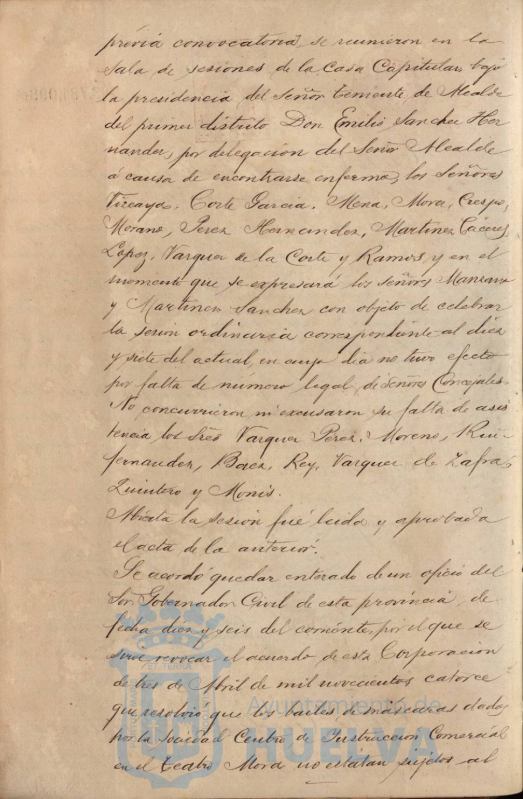 prévia convocatoria, se reunieron en la
Sala de sesiones de la Casa Capitular, bajo
la presidencia del Señor teniente de Alcalde
del primer distrito Don Emilio Sanchez Her
nandez, por delegacion del Señor Alcalde
á causa de encontrarse enfermo, los Señores
Vizcaya, Corte Garcia, Mena, Mora, Crespo,
Morano, Perez Hernandez, Martinez Cáceres,
Lopez, Vazquez de la Corte y Ramos, y en el
momento que se expresará los señores Manzano
y Martinez Sanchez con objeto de celebrar
la sesion ordinaria correspondiente al diez
y siete del actual, en cuyo dia no tuvo efecto
por falta de numero legal, de Señores Concejales.
No concurrieron ni excusaron su falta de asis
tencia los Sres Vazquez Perez, Moreno, Ruiz
fernandez, Baez, Rey, Vazquez de Zafra,
Quintero y Monis.
Abierta la sesión fué leida y aprobada
el acta de la anterior.
Se acordó quedar enterado de un oficio del
Sor Gobernador Civil de esta provincia, de
fecha diez y seis del corriente, por el que se
sirve revocar el acuerdo de esta Corporacion
de tres de Abril de mil novecientos catorce
que resolvió que los bailes de máscaras dados
por la sociedad Centro de Instruccion Comercial
en el teatro Mora no estaban sujetos al
Ayuntamiento de
HUELVA